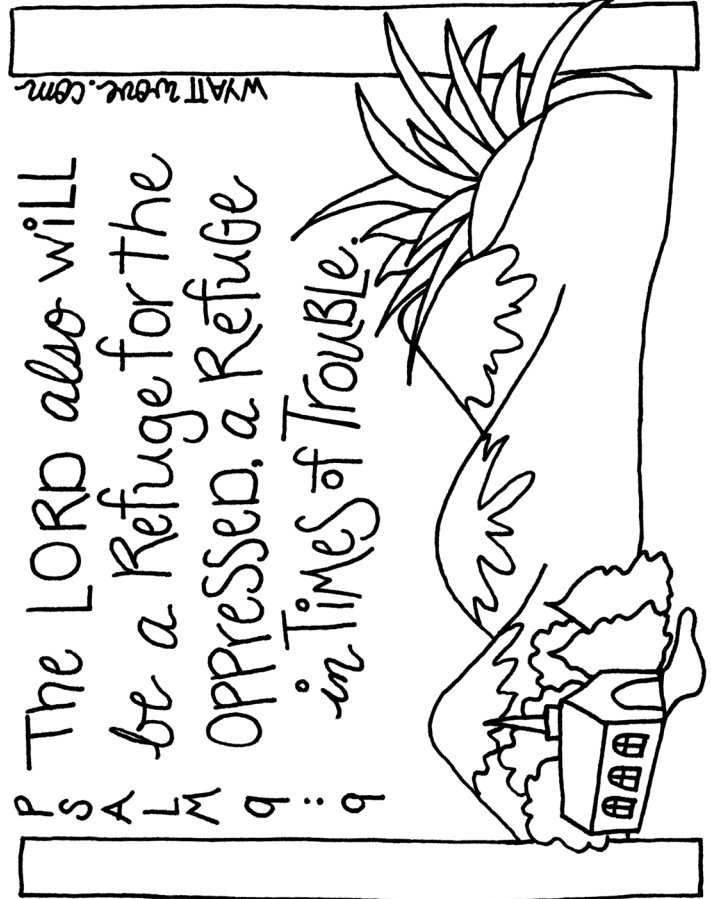 PSALM 9:9
The LORD also will
be a Refuge for the
oppressed, a Refuge
in Times of Trouble.
WYATT wove.com